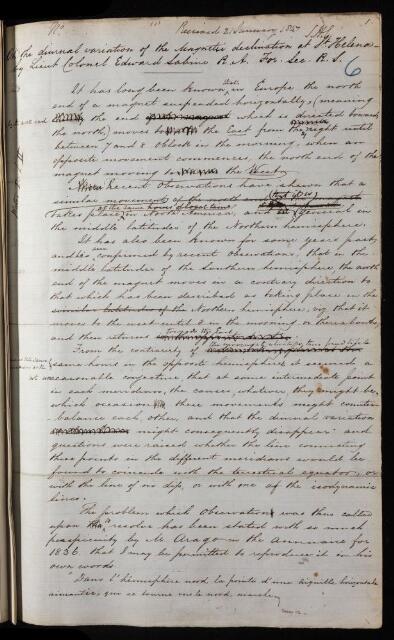 Received 2 January 1847
On the diurnal variation of the Magnetic declination at St Helena
by Lieut Colonel Edward Sabine R.A. For. Sec. R.S.
6
It has long been known that in Europe the north
end of a magnet suspended horizontally (meaning
the end which is directed towards
the north) moves to the East from the night until
between 7 and 8 o'clock in the morning, when an
opposite movement commences, the north end of the
magnet moving to the West.
recent observations have shewn that a
similar movement
takes place at the same hours of local time in North America, and in general in
the middle latitudes of the Northern hemisphere.
It has also been known for some years past,
and is confirmed by recent observations, that in the
middle latitudes of the Southern hemisphere the north
end of the magnet moves in a contrary direction to
that which has been described as taking place in the
Northern hemisphere, viz that it
moves to the west until 8 in the morning or thereabouts,
and then returns towards the East.
From the contrariety of the movements
same hours in the opposite hemispheres it seemed a
not unreasonable conjecture that at some intermediate point
in each meridian, the cause, whatever they might be,
which occasion these movements might counter-
balance each other, and that the diurnal variation
might consequently disappear: and
questions were raised whether the line connecting
these points in the different meridians would be
found to coincide with the terrestrial equator, or
with the line of no dip, or with one of the isodynamic
lines.
The problem which observation was thus called
upon to resolve has been stated with so much
perspicuity by M. Arago in the Annuaire for
1836 that I may be permitted to reproduce it in his
own words.
"Dans l'hémisphère nord la pointe d'une aiguille horizontale
aimantée, qui se tourne vers le nord, marche